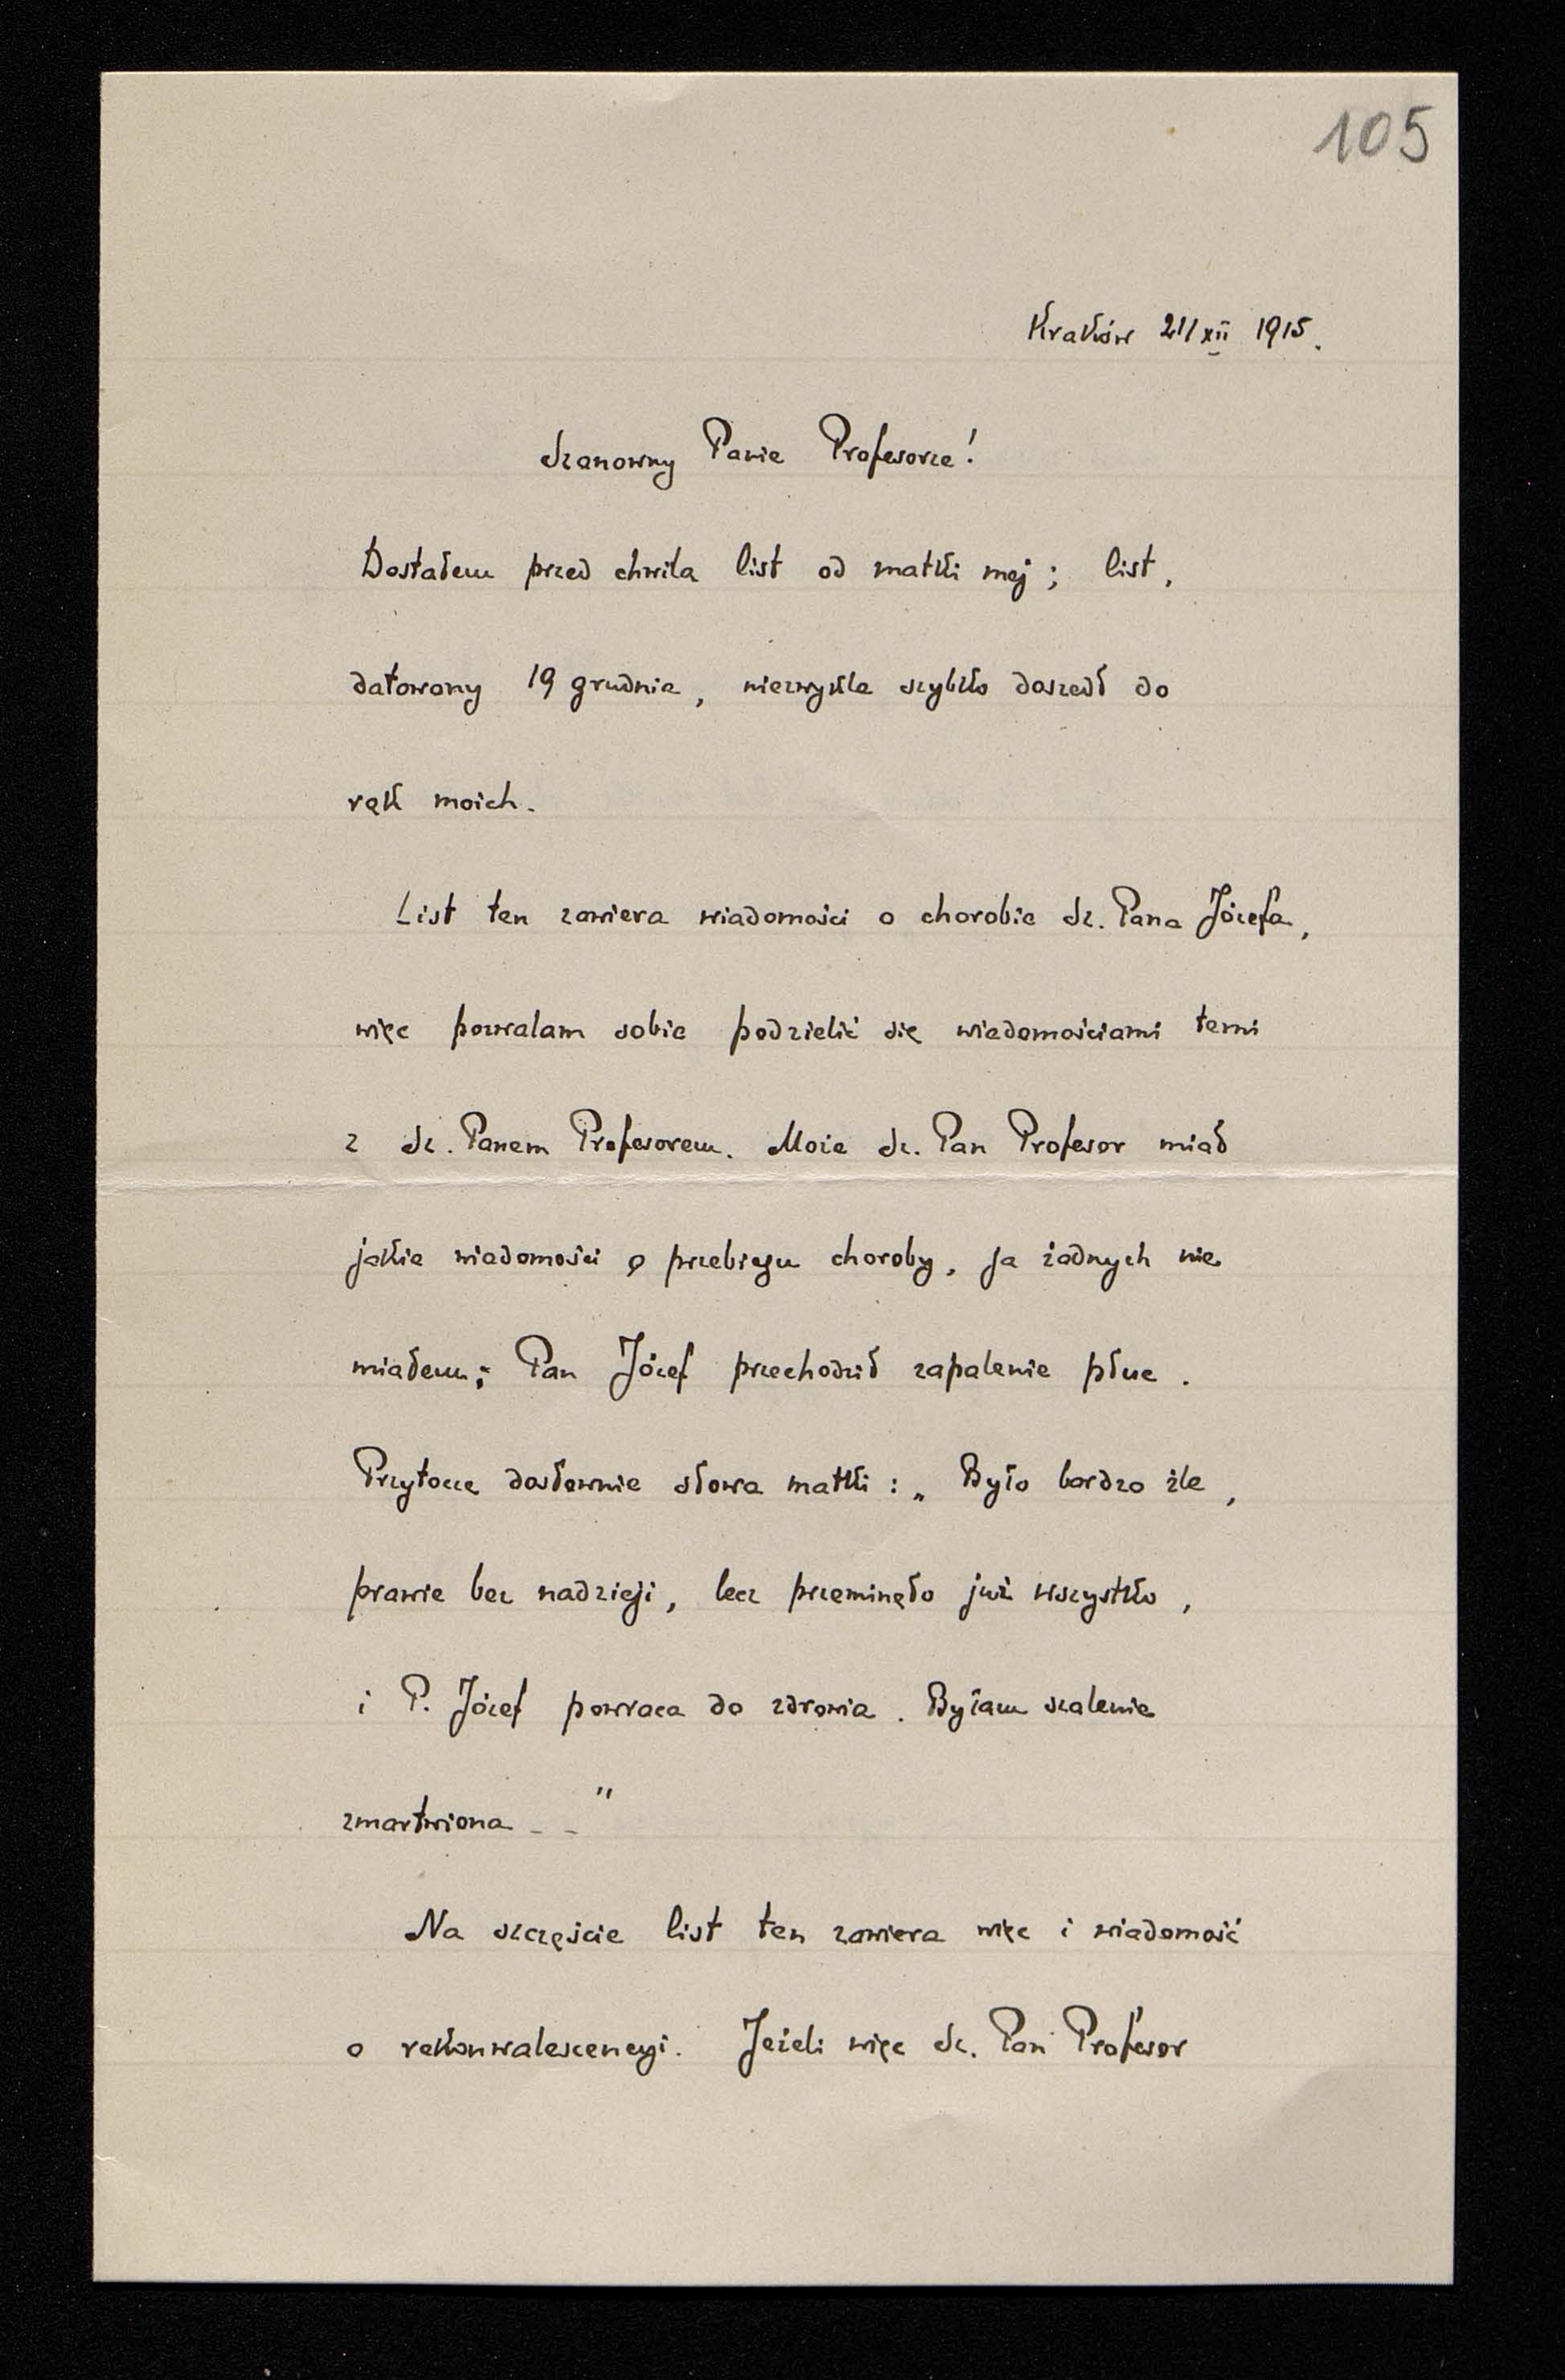 105
Kraków 21/XII 1915.
Szanowny Panie Profesorze!
Dostałem przed chwila list od matki mej; list,
datowany 19 grudnia, niezwykle szybko doszedł do
rąk moich.
List ten zawiera wiadomości o chorobie Sz. Pana Józefa,
więc pozwalam sobie podzielić się wiadomościami temi
z Sz. Panem Profesorem. Może Sz. Pan Profesor miał
jakie wiadomości o przebiegu choroby, ja żadnych nie
miałem; Pan Józef przechodził zapalenie płuc.
Przytoczę dosłownie słowa matki: „Było bardzo źle,
prawie bez nadzieji, lecz przeminęło już wszystko,
i P. Józef powraca do zdrowia. Byłam szalenie
zmartwiona _ _"
Na szczęście list ten zawiera więc i wiadomość
o rekonwalescencyi. Jeżeli więc Sz. Pan Profesor